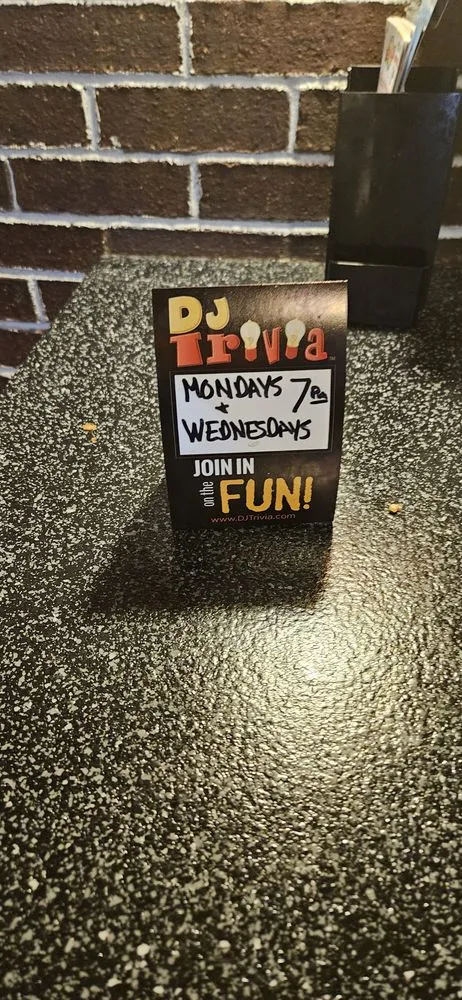 DJ
Trivia
MONDAYS 7PM
+
WEDNESDAYS
JOIN IN
on the FUN!
www.DJTrivia.com